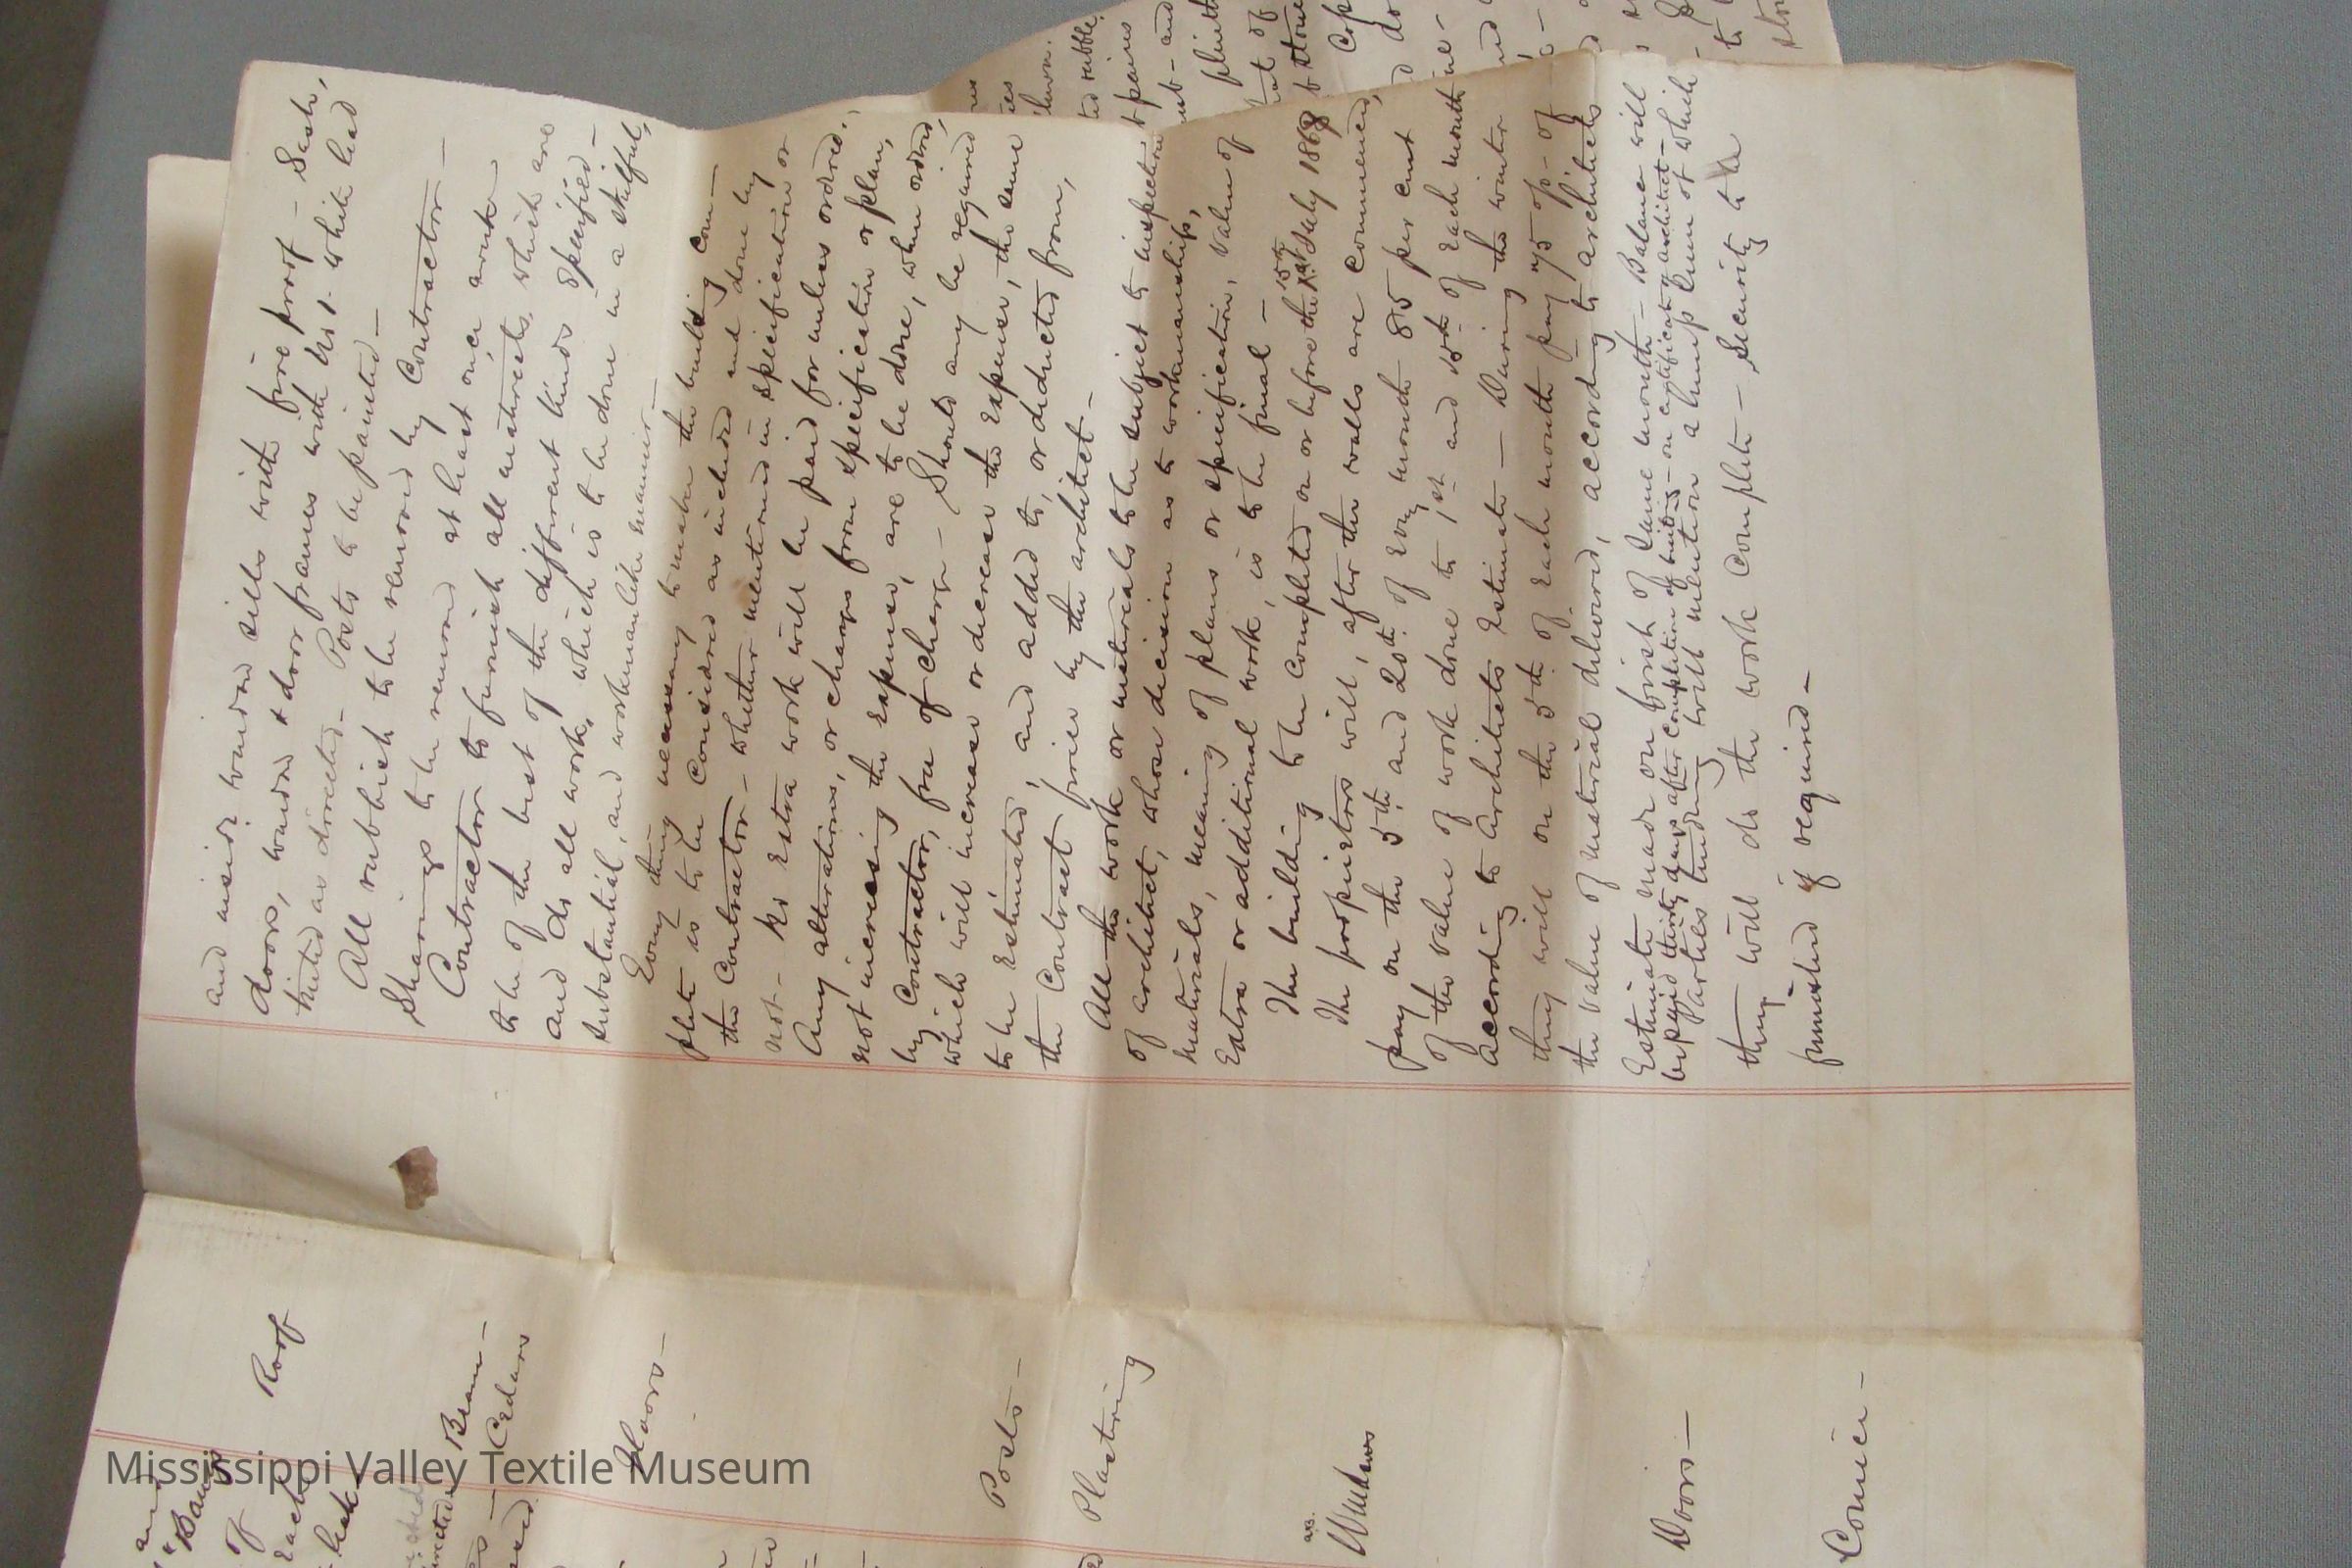 and inside window sills with fire proof - Sash,
doors, window & door frames with No 1 - white lead
tinted as directed - Posts to be painted -
All rubbish to be removed by Contractor -
Shavings to be removed at least once a week
Contractor to furnish all materials, which are
to be of the best of the different kinds specified -
and do all work, which is to be done in a skilful,
substantial, and workmanlike manner -
Every thing necessary to make the building com-
plete is to be considered as included and done by
the Contractor - whether mentioned in specification or
not - No Extra work will be paid for unless ordered.
Any alterations, or change from specification or plan,
not increasing the expense, are to be done, when ordered,
by Contractor, free of charge - Should any be required
which will increase or decrease the expense, the same
to be estimated, and added to, or deducted from,
the Contract price by the architect -
All the work or materials to be subject to inspection
of architect, whose decision as to workmanship,
materials, meaning of plans or specification, value of
Extra or additional work, is to be final -
The building to be completed on or before the 15th July 1868
The proprietors will, after the walls are commenced,
pay on the 5th and 20th of every month 85 per cent
of the value of work done to 1st and 15th of each month
according to Architects Estimate - During the winter
they will on the 5th of each month pay 75 of
the value of material delivered, according to architects
Estimate made on finish of same month - Balance will
be paid thirty days after completion of building - on certificate of architect -
Parties tendering will mention a lump sum at which
they will do the work complete - Security to be
furnished if required -
Roof
Beam -
Cedars
Floors -
Posts -
Plastering
Windows
Doors -
Cornice -
and
of
Each
rubble
pains
plinth
stone
Cop
do
to
Mississippi Valley Textile Museum